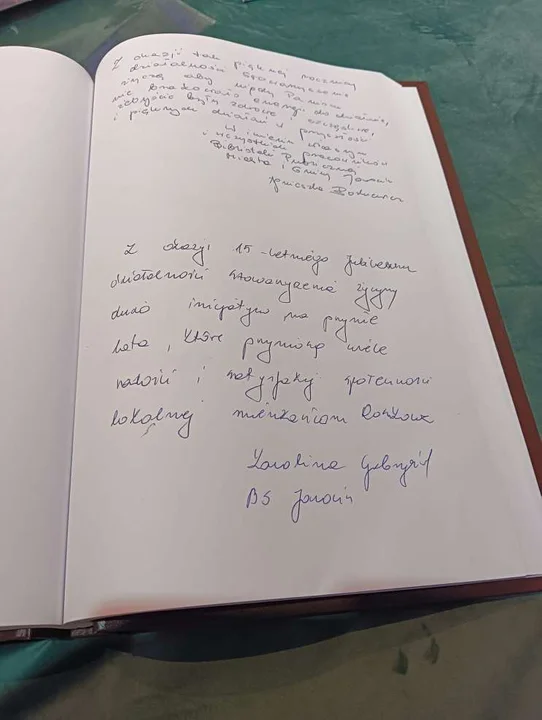 Z okazji tak pięknej rocznicy
działalności Stowarzyszenia
życzę aby nigdy Państwu
nie brakowało energii do działania,
żebyście byli zdrowe, szczęśliwe,
i pięknych działań w przyszłości
W imieniu własnym
i wszystkich pracowników
Biblioteki Publicznej
Miasta i Gminy Jarocin
Agnieszka
Z okazji 15-letniego Jubileuszu
działalności stowarzyszenia życzymy
dużo inicjatyw na przyszłe
lata, które przyniosą wiele
radości i satysfakcji społeczności
lokalnej mieszkańcom
Karolina Gabryś
BS Jarocin